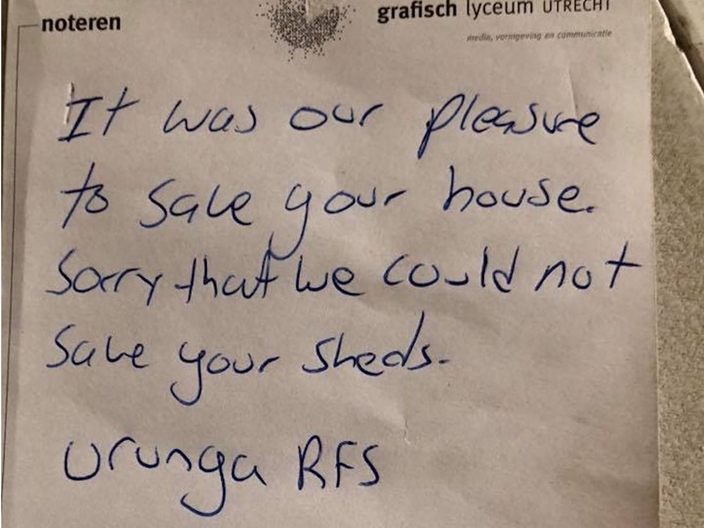 noteren
grafisch lyceum UTRECHT
media, vormgeving en communicatie
It was our pleasure
to save your house.
Sorry that we could not
save your sheds.
Urunga RFS